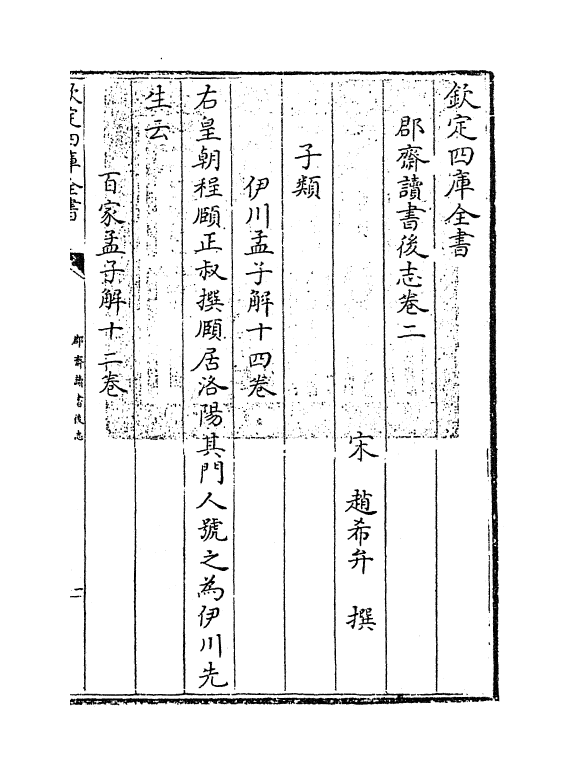 欽定四庫全書
郡齋讀書後志卷二
宋 趙希弁 撰
子類
伊川孟子解十四卷
右皇朝程頤正叔撰頤居洛陽其門人號之為伊川先
生云
百家孟子解十二卷
欽定四庫全書
郡齋讀書後志